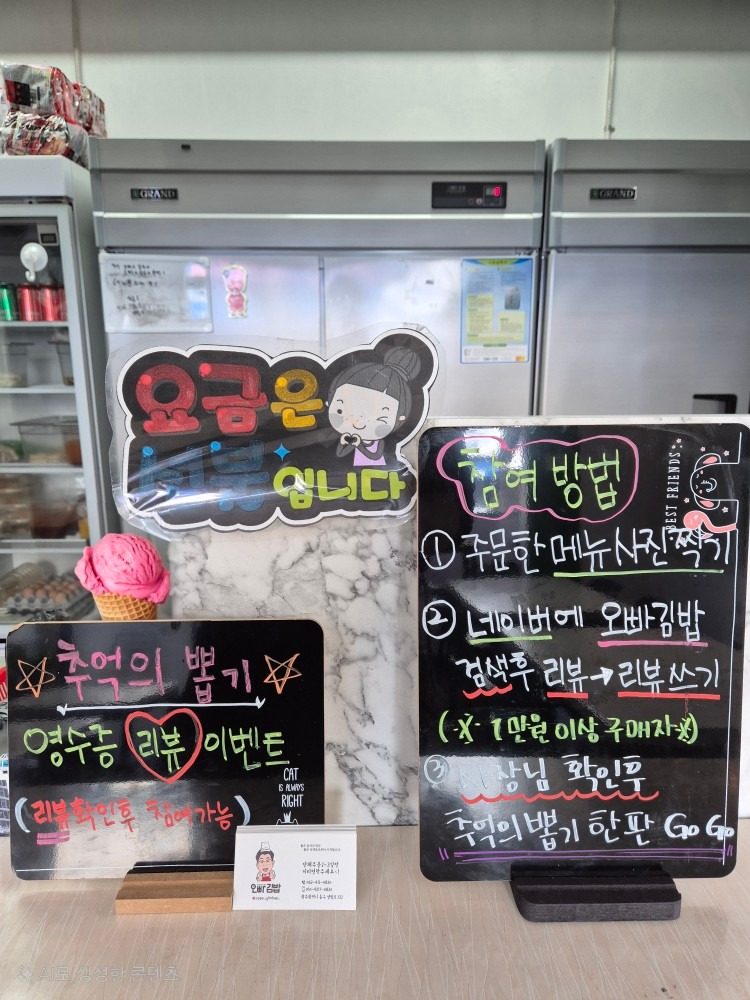 GRAND
GRAND
요금은
선불입니다
추억의 뽑기
영수증 리뷰 이벤트
(리뷰확인후 참여가능)
CAT
IS ALWAYS
RIGHT
오빠김밥
참여 방법
BEST FRIENDS
① 주문한 메뉴 사진 찍기
② 네이버에 오빠김밥
검색후 리뷰→리뷰쓰기
(※ 1만원 이상 구매자※)
③ 사장님 확인후
추억의 뽑기 한판 GoGo
AI로 생성한 콘텐츠